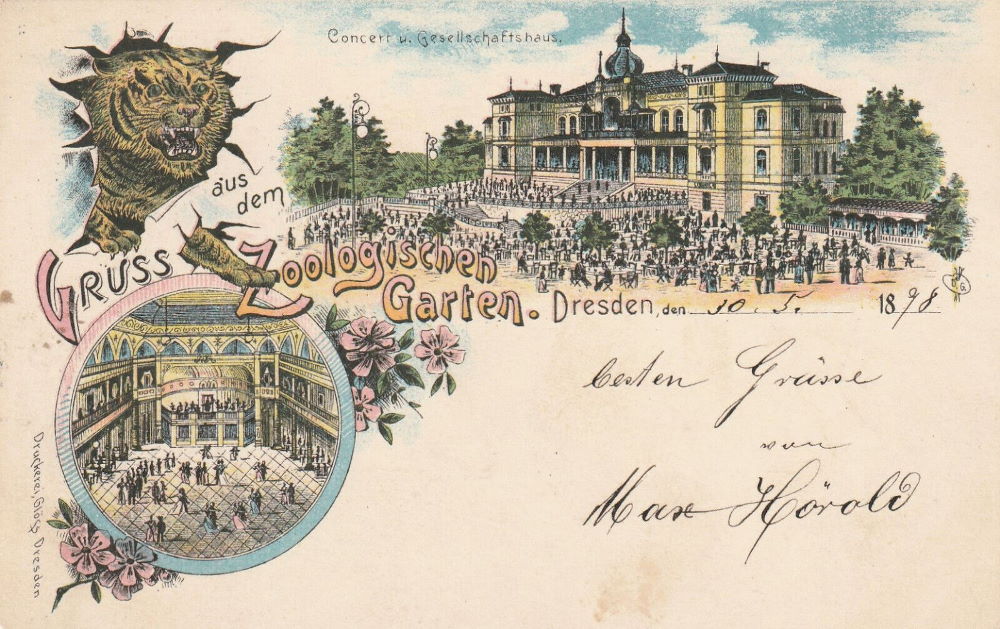 Concert u. Gesellschaftshaus.
Gruss aus dem
Zoologischen
Garten.
Dresden, den 30. 5. 1898
besten Grüsse
von
Max Hörold
Druckerei Glöss, Dresden